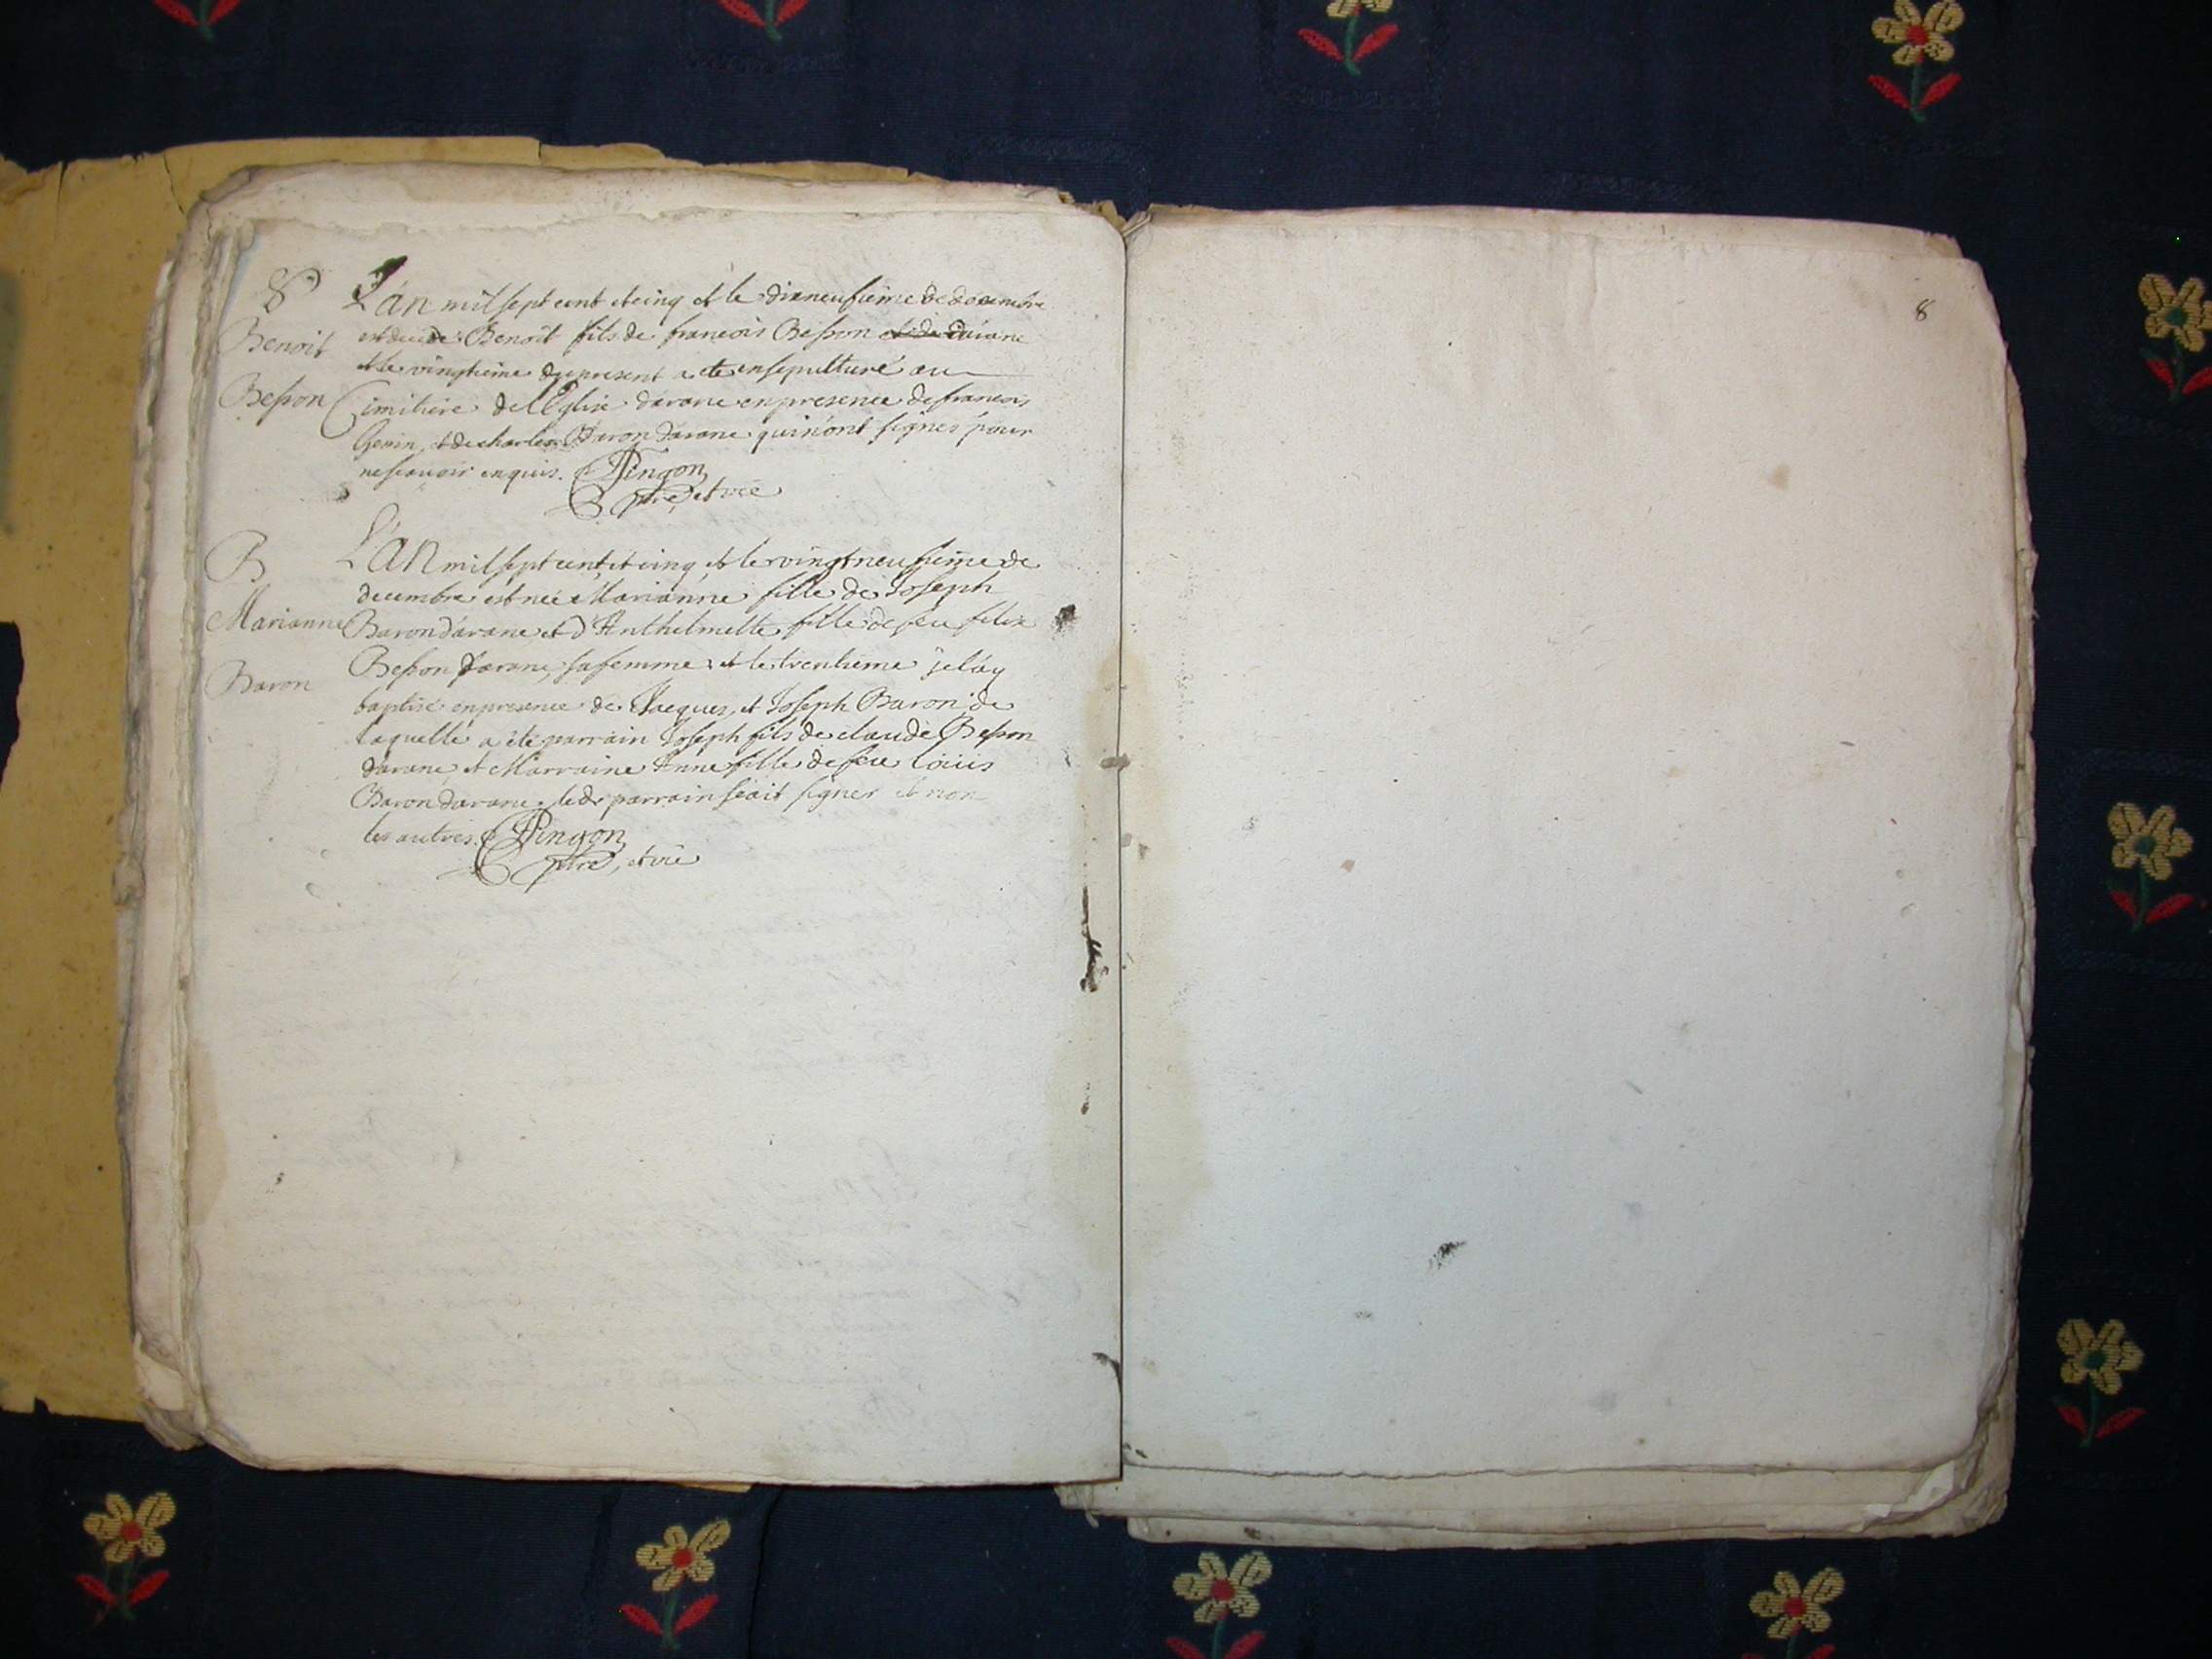 8
Benoit
Besson
L'an mil sept cent et cinq et le dixneufieme de decembre
est decede Benoit fils de francois Besson
et le vingtieme du present a ete ensepulturé au
Cimitiere de l'Eglise darane en presence de francois
et de charles Baron darane qui n'ont signes pour
ne scavoir enquis. Pingon
ptre, et vic
B
Marianne
Baron
L'an mil sept cent et cinq et le vingtneufieme de
decembre est née Marianne fille de Joseph
Baron d'arane et d'Anthelmette fille de feu felix
Besson darane, sa femme et le trentieme je l'ay
baptisé en presence de Jacques, et Joseph Baron, de
laquelle a été parrain Joseph fils de claude Besson
darane, et Marraine Anne fille de feu loüis
Baron darane. led. parrain scait signer et non
les autres. Pingon
ptre, et vic
8